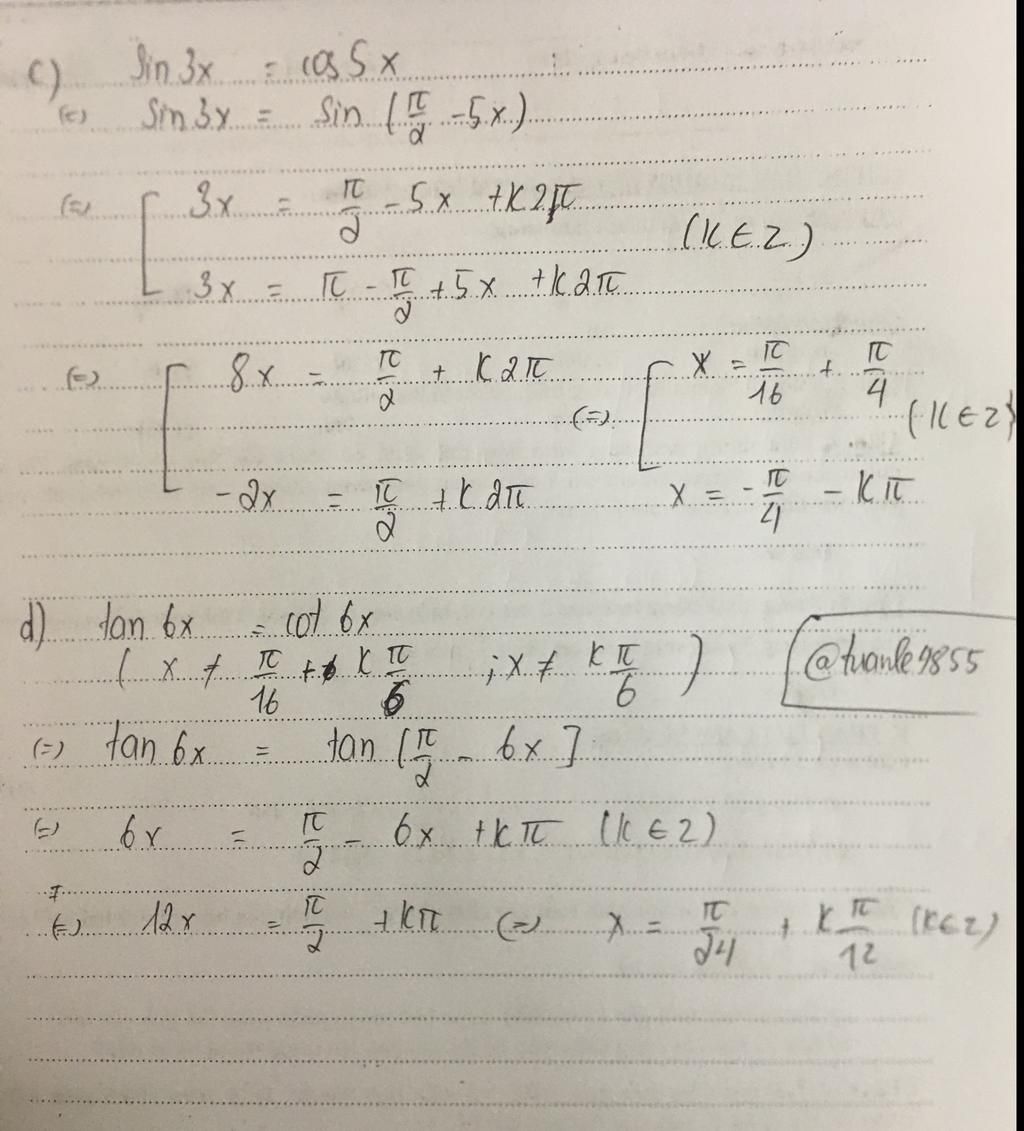 c) sin 3x = cos 5x
(=) sin 3x = sin (π/2 - 5x)
(=) [ 3x = π/2 - 5x + k2π
(k ∈ Z)
3x = π - π/2 + 5x + k2π
(=) [ 8x = π/2 + k2π (=) [ x = π/16 + π/4
(k ∈ Z)
-2x = π/2 + k2π x = -π/4 - kπ
d) tan 6x = cot 6x
( x ≠ π/16 + k π/6 ; x ≠ kπ/6 )
@tuanle9855
(=) tan 6x = tan [π/2 - 6x]
(=) 6x = π/2 - 6x + kπ (k ∈ Z)
(=) 12x = π/2 + kπ (=) x = π/24 + k π/12 (k ∈ Z)